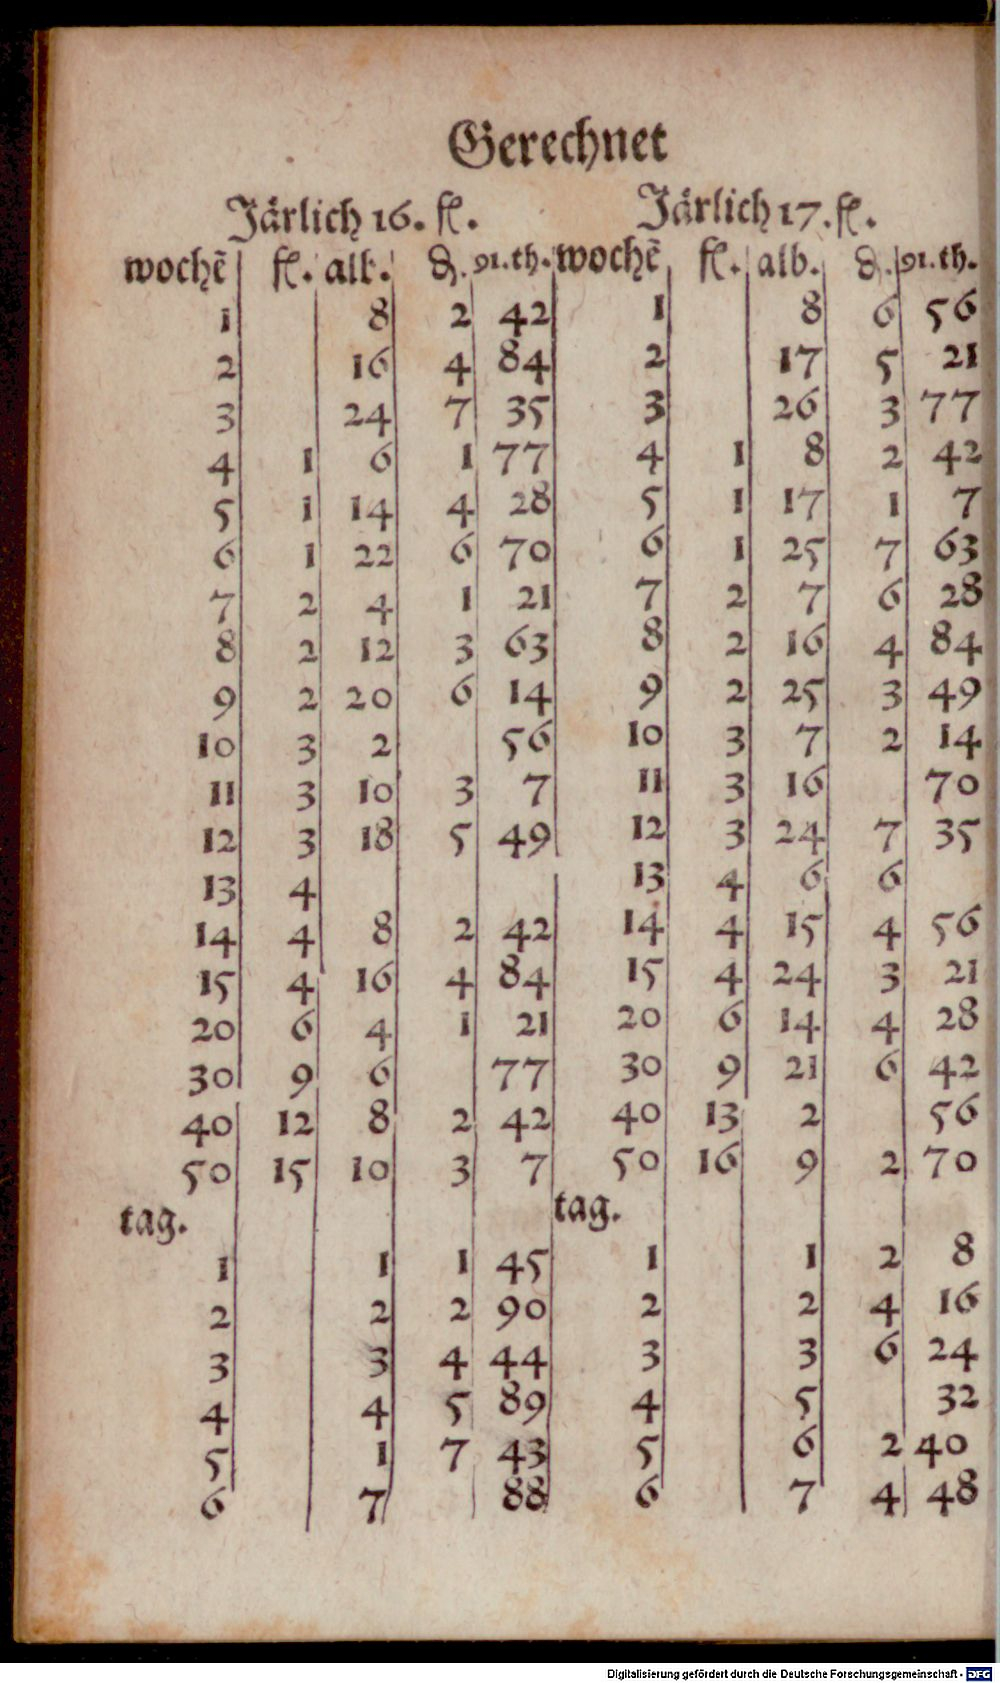 Gerechnet
Järlich 16. fl. Järlich 17. fl.
wochē fl. alb. ₰. 91.th. wochē fl. alb. ₰. 91.th.
1 8 2 42 1 8 6 56
2 16 4 84 2 17 5 21
3 24 7 35 3 26 3 77
4 1 6 1 77 4 1 8 2 42
5 1 14 4 28 5 1 17 1 7
6 1 22 6 70 6 1 25 7 63
7 2 4 1 21 7 2 7 6 28
8 2 12 3 63 8 2 16 4 84
9 2 20 6 14 9 2 25 3 49
10 3 2 56 10 3 7 2 14
11 3 10 3 7 11 3 16 70
12 3 18 5 49 12 3 24 7 35
13 4 13 4 6 6
14 4 8 2 42 14 4 15 4 56
15 4 16 4 84 15 4 24 3 21
20 6 4 1 21 20 6 14 4 28
30 9 6 77 30 9 21 6 42
40 12 8 2 42 40 13 2 56
50 15 10 3 7 50 16 9 2 70
tag. tag.
1 1 1 45 1 1 2 8
2 2 2 90 2 2 4 16
3 3 4 44 3 3 6 24
4 4 5 89 4 5 32
5 1 7 43 5 6 2 40
6 7 88 6 7 4 48
Digitalisierung gefördert durch die Deutsche Forschungsgemeinschaft - DFG